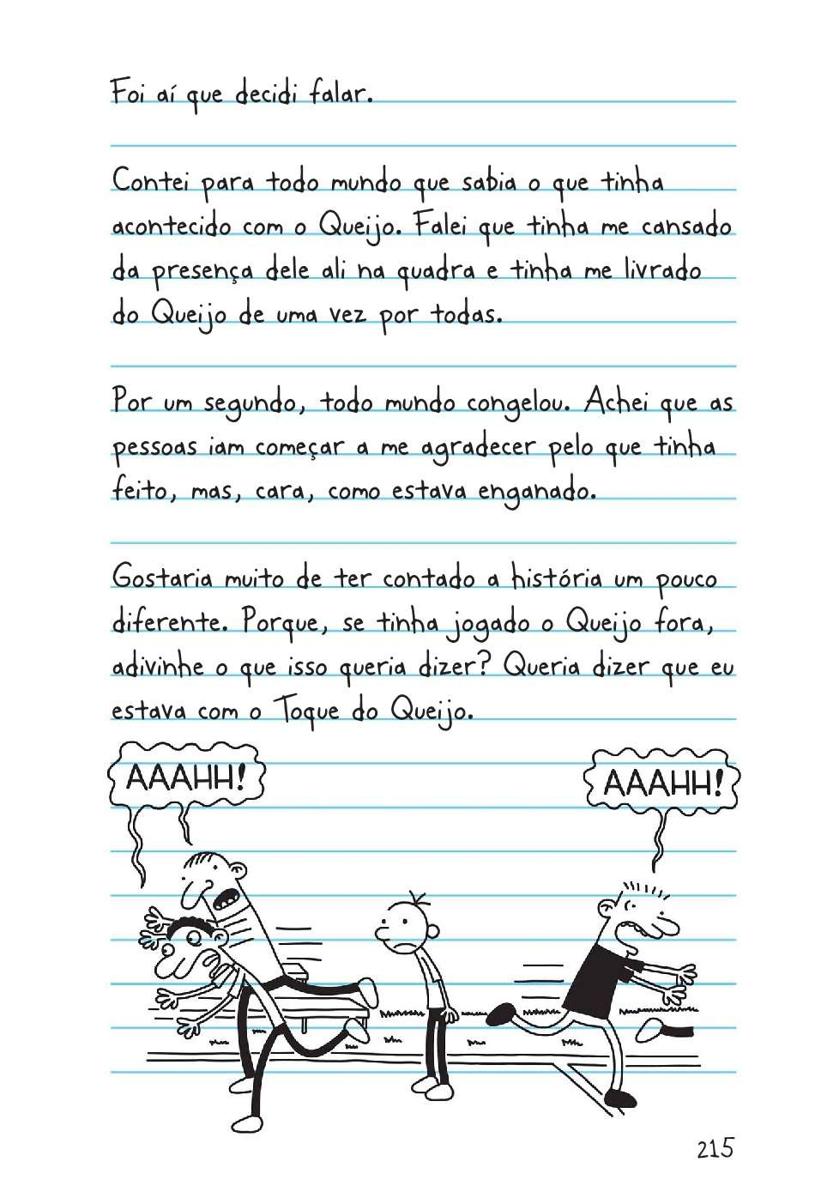 Foi aí que decidi falar.
Contei para todo mundo que sabia o que tinha
acontecido com o Queijo. Falei que tinha me cansado
da presença dele ali na quadra e tinha me livrado
do Queijo de uma vez por todas.
Por um segundo, todo mundo congelou. Achei que as
pessoas iam começar a me agradecer pelo que tinha
feito, mas, cara, como estava enganado.
Gostaria muito de ter contado a história um pouco
diferente. Porque, se tinha jogado o Queijo fora,
adivinhe o que isso queria dizer? Queria dizer que eu
estava com o Toque do Queijo.
AAAHH!
AAAHH!
215